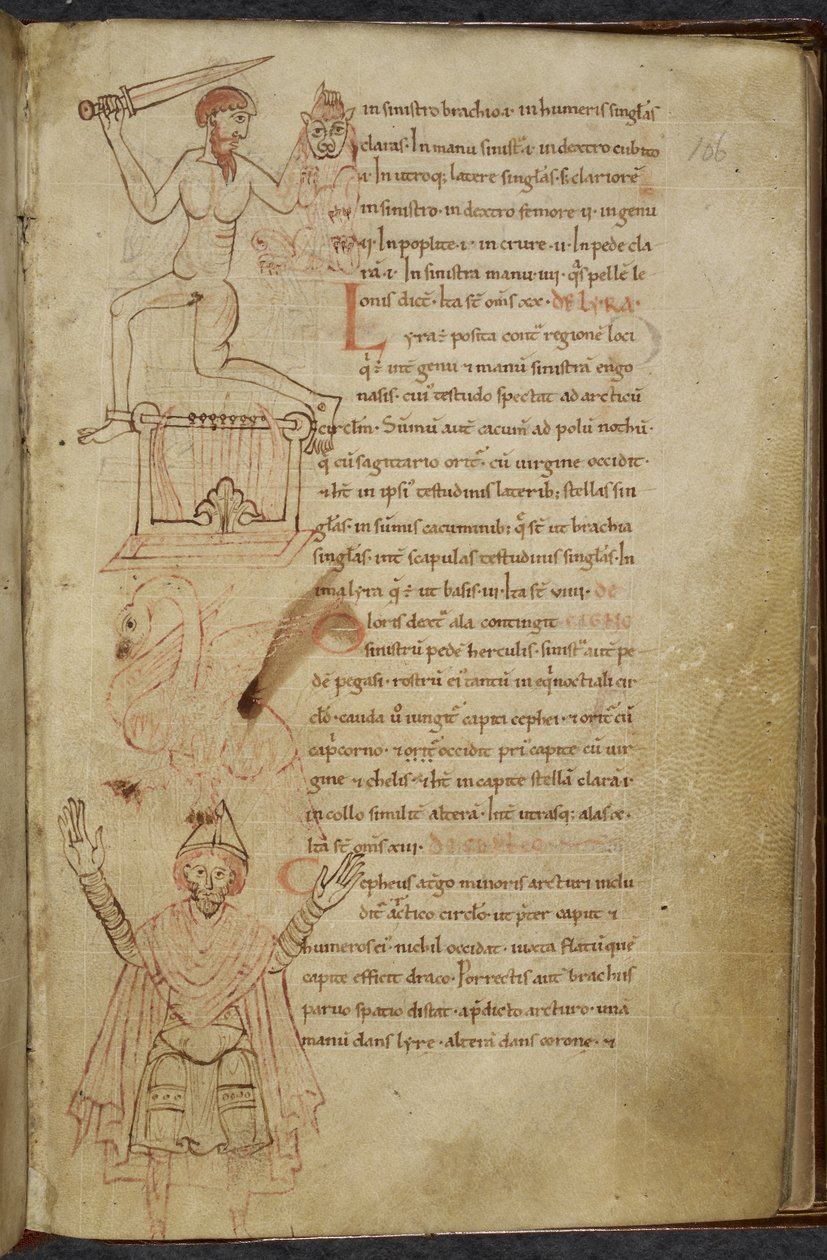 in sinistro brachio ·i· in humeris singlas
claras· In manu sinistra ·i· in dextro cubito
·i· In utroq; latere singlas· s; clariorē
in sinistro· in dextro femore ·ii· in genu
·ii· In poplite ·i· in crure ·ii· In pede cla
rā ·i· In sinistra manu ·iiii· qs pellē le
onis dict̄· Ita st̄ om̄s ·xx· DE LYRA·
Lyra ē posita cont regionē loci
q̄ ē int̄ genu & manū sinistrā engo
nasis· cui' testudo spectat ad arcticū
circlm̄· Sūmū aut̄ cacum̄ ad polū nothū·
q̄ cū sagittario orit̄· cū uirgine occidit·
& ht̄ in ipsi' testudinis laterib; stellas sin
glas· in sūmis cacuminib; q̄ st̄ ut brachia
singlas· int̄ scapulas testudinis singlas· In
ima lyra q̄ ē ut basis ·iii· Ita st̄ ·viiii· DE
Oloris dext ala contingit CIGNO
sinistrū pedē herculis· sinist aut̄ pe
dē pegasi· rostrū ei' tantū in eqnoctiali cir
clo· cauda u° iungit̄ capiti cephei· & orit̄ cū
capcorno· & orit̄ occidit pri' capite cū uir
gine & chelis· & ht̄ in capite stellā clarā ·i·
in collo similit̄ alterā· Int̄ utrasq; alas ·x·
Ita st̄ om̄s ·xiii·
Cepheus a tergo minoris arcturi inclu
dit̄ arctico circlo· ut pter caput &
humeros ei' nichil occidat· iuxta flatū quē
capite efficit draco· Porrectis aut̄ brachiis
paruo spatio distat· a p̄dicto arcturo· unā
manū dans lyrę· alterā dans coronę· &
106